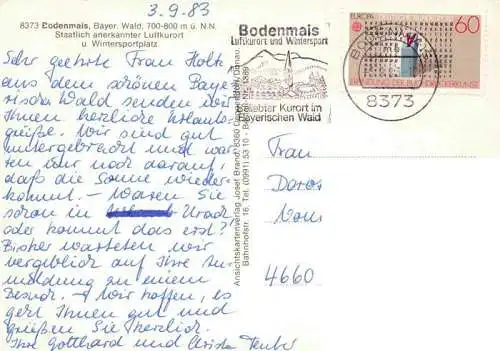 3.9.83
8373 Bodenmais, Bayer. Wald, 700-800 m ü. N.N.
Staatlich anerkannter Luftkurort
u. Wintersportplatz
Sehr geehrte Frau Holte
aus dem schönen Baye
rischen Wald senden wir
Ihnen herzliche Urlaubs-
grüße. Wir sind gut
untergebracht und war
ten nur noch darauf,
daß die Sonne wieder
kommt. – Waren Sie
schon in Urach
oder kommt das erst?
Bisher warteten wir
vergeblich auf Ihre An
meldung zu einem
Besuch. – Wir hoffen, es
geht Ihnen gut und
grüßen Sie herzlich.
Ihre Gotthard und
Bodenmais
Luftkurort und Wintersport
Beliebter Kurort im
Bayerischen Wald
Ansichtskartenverlag Josef Brandl, 8360 Deggendorf/Donau
Bahnhofstr. 16, Tel. (0991) 5310
EUROPA
60
ERFINDUNG DER BUCHDRUCKERKUNST
BODENMAIS
8373
Frau
4660